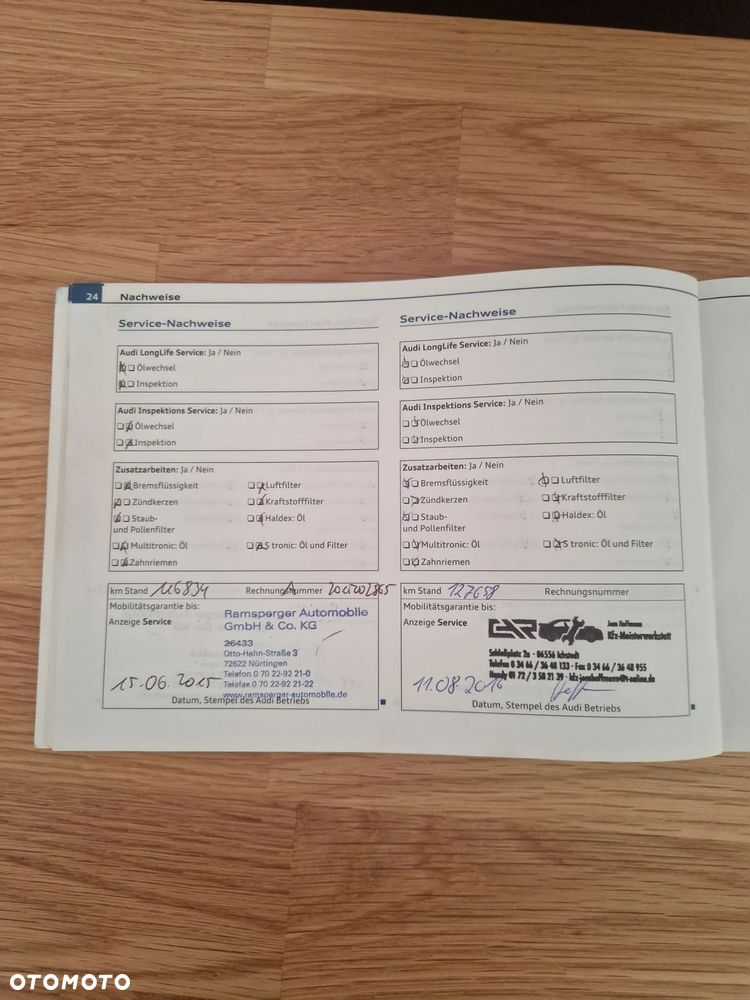 24 Nachweise
Service-Nachweise
Audi LongLife Service: Ja / Nein
Ölwechsel
Inspektion
Audi Inspektions Service: Ja / Nein
Ölwechsel
Inspektion
Zusatzarbeiten: Ja / Nein
Bremsflüssigkeit Luftfilter
Zündkerzen Kraftstofffilter
Staub- Haldex: Öl
und Pollenfilter
Multitronic: Öl S tronic: Öl und Filter
Zahnriemen
km Stand 116834 Rechnungsnummer
Mobilitätsgarantie bis:
Anzeige Service
Ramsperger Automobile
GmbH & Co. KG
26433
Otto-Hahn-Straße 3
72622 Nürtingen
Telefon 0 70 22-92 21-0
Telefax 0 70 22-92 21-22
www.ramsperger-automobile.de
15.06.2015
Datum, Stempel des Audi Betriebs
Service-Nachweise
Audi LongLife Service: Ja / Nein
Ölwechsel
Inspektion
Audi Inspektions Service: Ja / Nein
Ölwechsel
Inspektion
Zusatzarbeiten: Ja / Nein
Bremsflüssigkeit Luftfilter
Zündkerzen Kraftstofffilter
Staub- Haldex: Öl
und Pollenfilter
Multitronic: Öl S tronic: Öl und Filter
Zahnriemen
km Stand 127658 Rechnungsnummer
Mobilitätsgarantie bis:
Anzeige Service
Jens Hoffmann
Kfz-Meisterwerkstatt
Schloßplatz 2a · 06556 Ichstedt
Telefon 0 34 66 / 36 48 133 · Fax 0 34 66 / 36 48 955
Handy 01 72 / 3 58 21 39 · kfz-jenshoffmann@t-online.de
11.08.2016
Datum, Stempel des Audi Betriebs
OTOMOTO